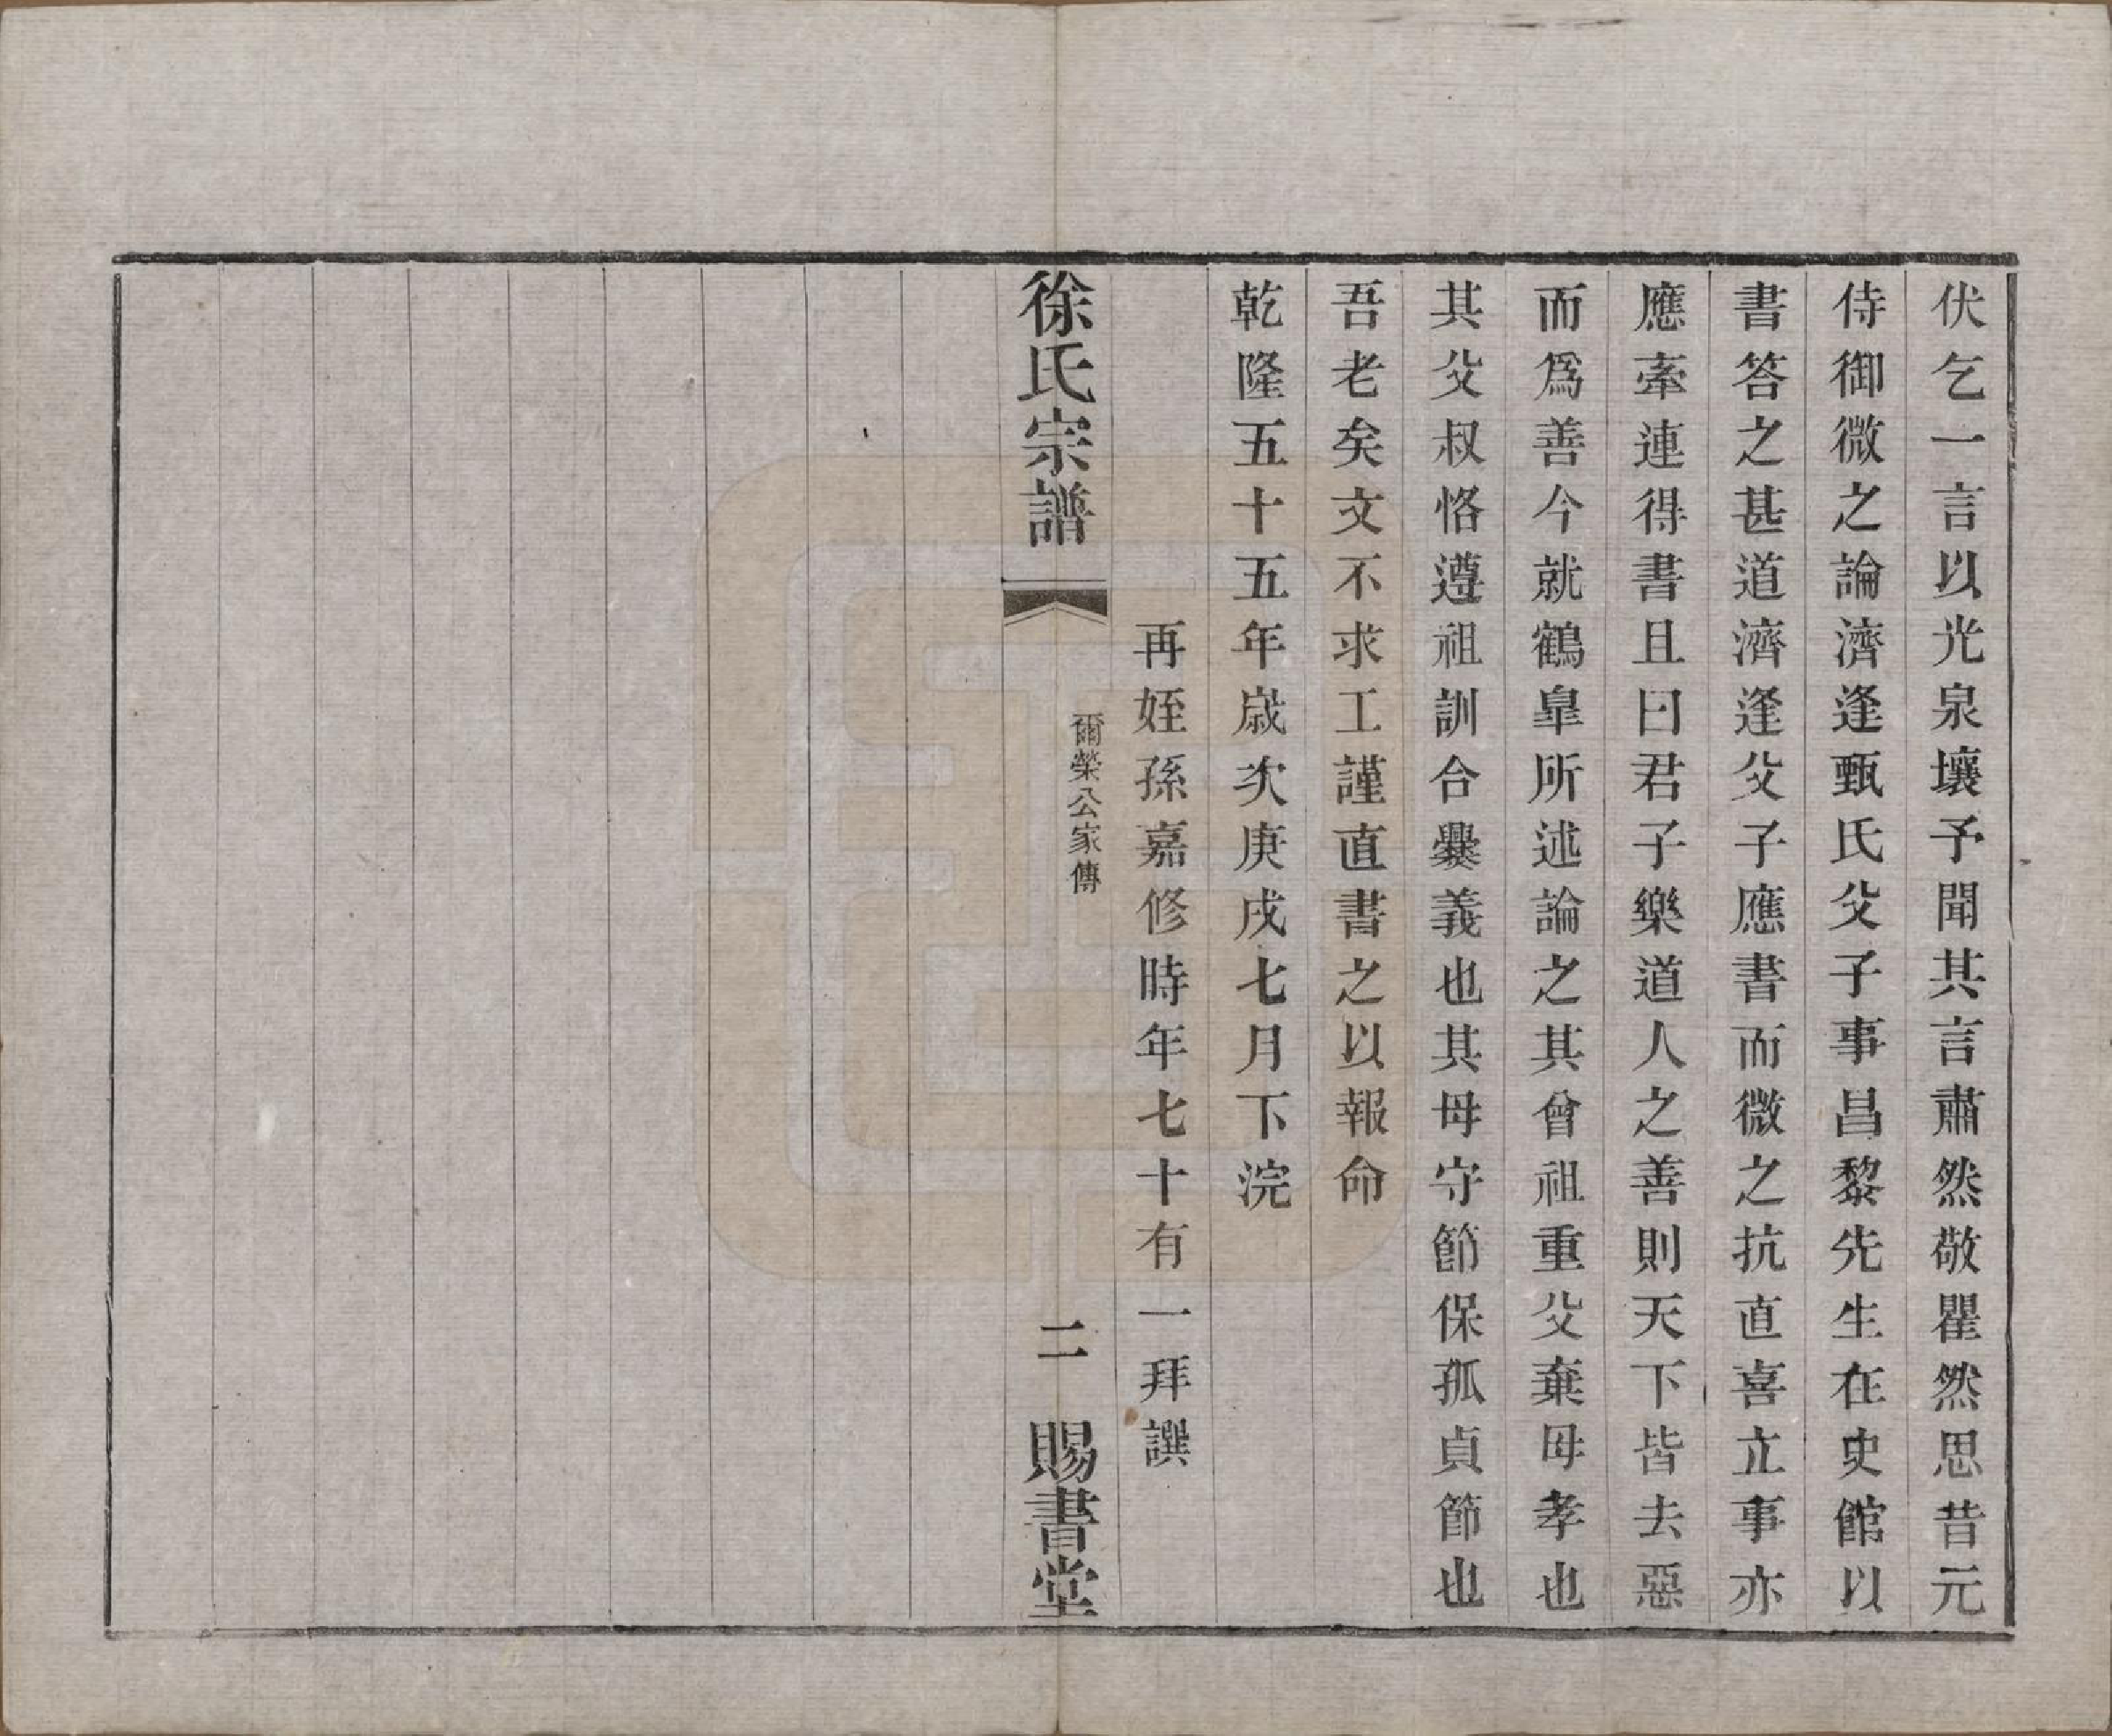 伏乞一言以光泉壤予聞其言肅然敬瞿然思昔元
侍御微之論濟逢甄氏父子事昌黎先生在史館以
書答之甚道濟逢父子應書而微之抗直喜立事亦
應牽連得書且曰君子樂道人之善則天下皆去惡
而爲善今就鶴臯所述論之其曾祖重父棄母孝也
其父叔恪遵祖訓合爨義也其母守節保孤貞節也
吾老矣文不求工謹直書之以報命
乾隆五十五年歲次庚戌七月下浣
再姪孫嘉修時年七十有一拜譔
徐氏宗譜
爾榮公家傳
二
賜書堂